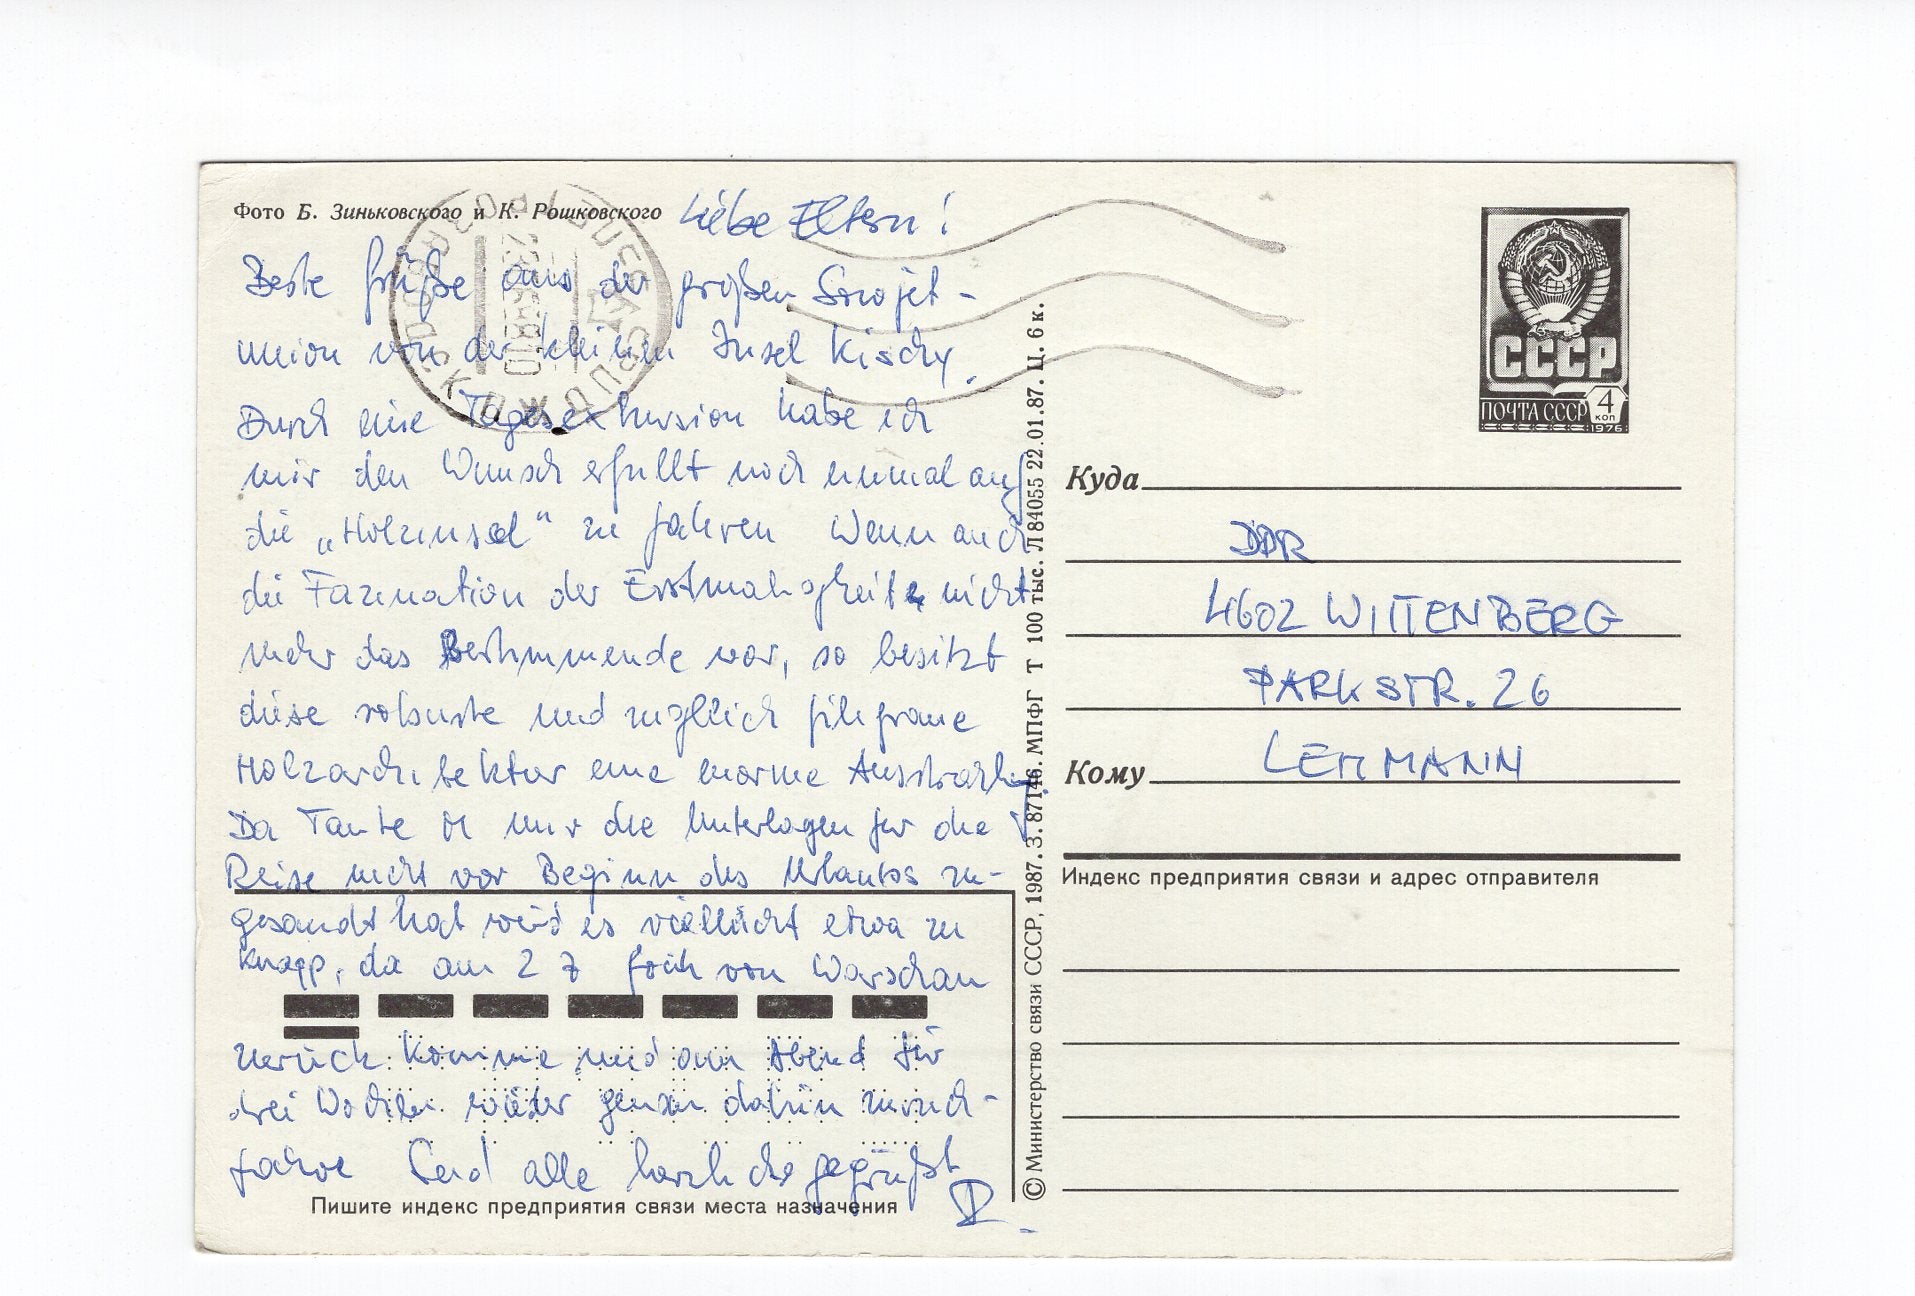 Фото Б. Зиньковского и К. Рошковского
Liebe Eltern!
Beste Grüße aus der großen Sowjet-
union von der kleinen Insel Kischy.
Durch eine Tagesexkursion habe ich
mir den Wunsch erfüllt noch einmal auf
die „Holzinsel“ zu fahren Wenn auch
die Faszination der Erstmaligkeit nicht
mehr das Bestimmende war, so besitzt
diese robuste und zugleich filigrane
Holzarchitektur eine enorme Ausstrahlung.
Da Tante mir die Unterlagen für die
Reise nicht vor Beginn des Urlaubs zu-
gesandt hat wird es vielleicht etwas zu
knapp, da am 2 7 früh von Warschau
zurück komme und am Abend für
drei Wochen wieder genau dahin zurück-
fahre Seid alle herzlichst gegrüßt
СССР
ПОЧТА СССР 4 коп
1976
Куда
DDR
4602 WITTENBERG
PARKSTR. 26
Кому LEHMANN
Индекс предприятия связи и адрес отправителя
Пишите индекс предприятия связи места назначения
© Министерство связи СССР, 1987. З. 87146. МПФГ Т 100 тыс. Л 84055 22.01.87. Ц. 6 к.